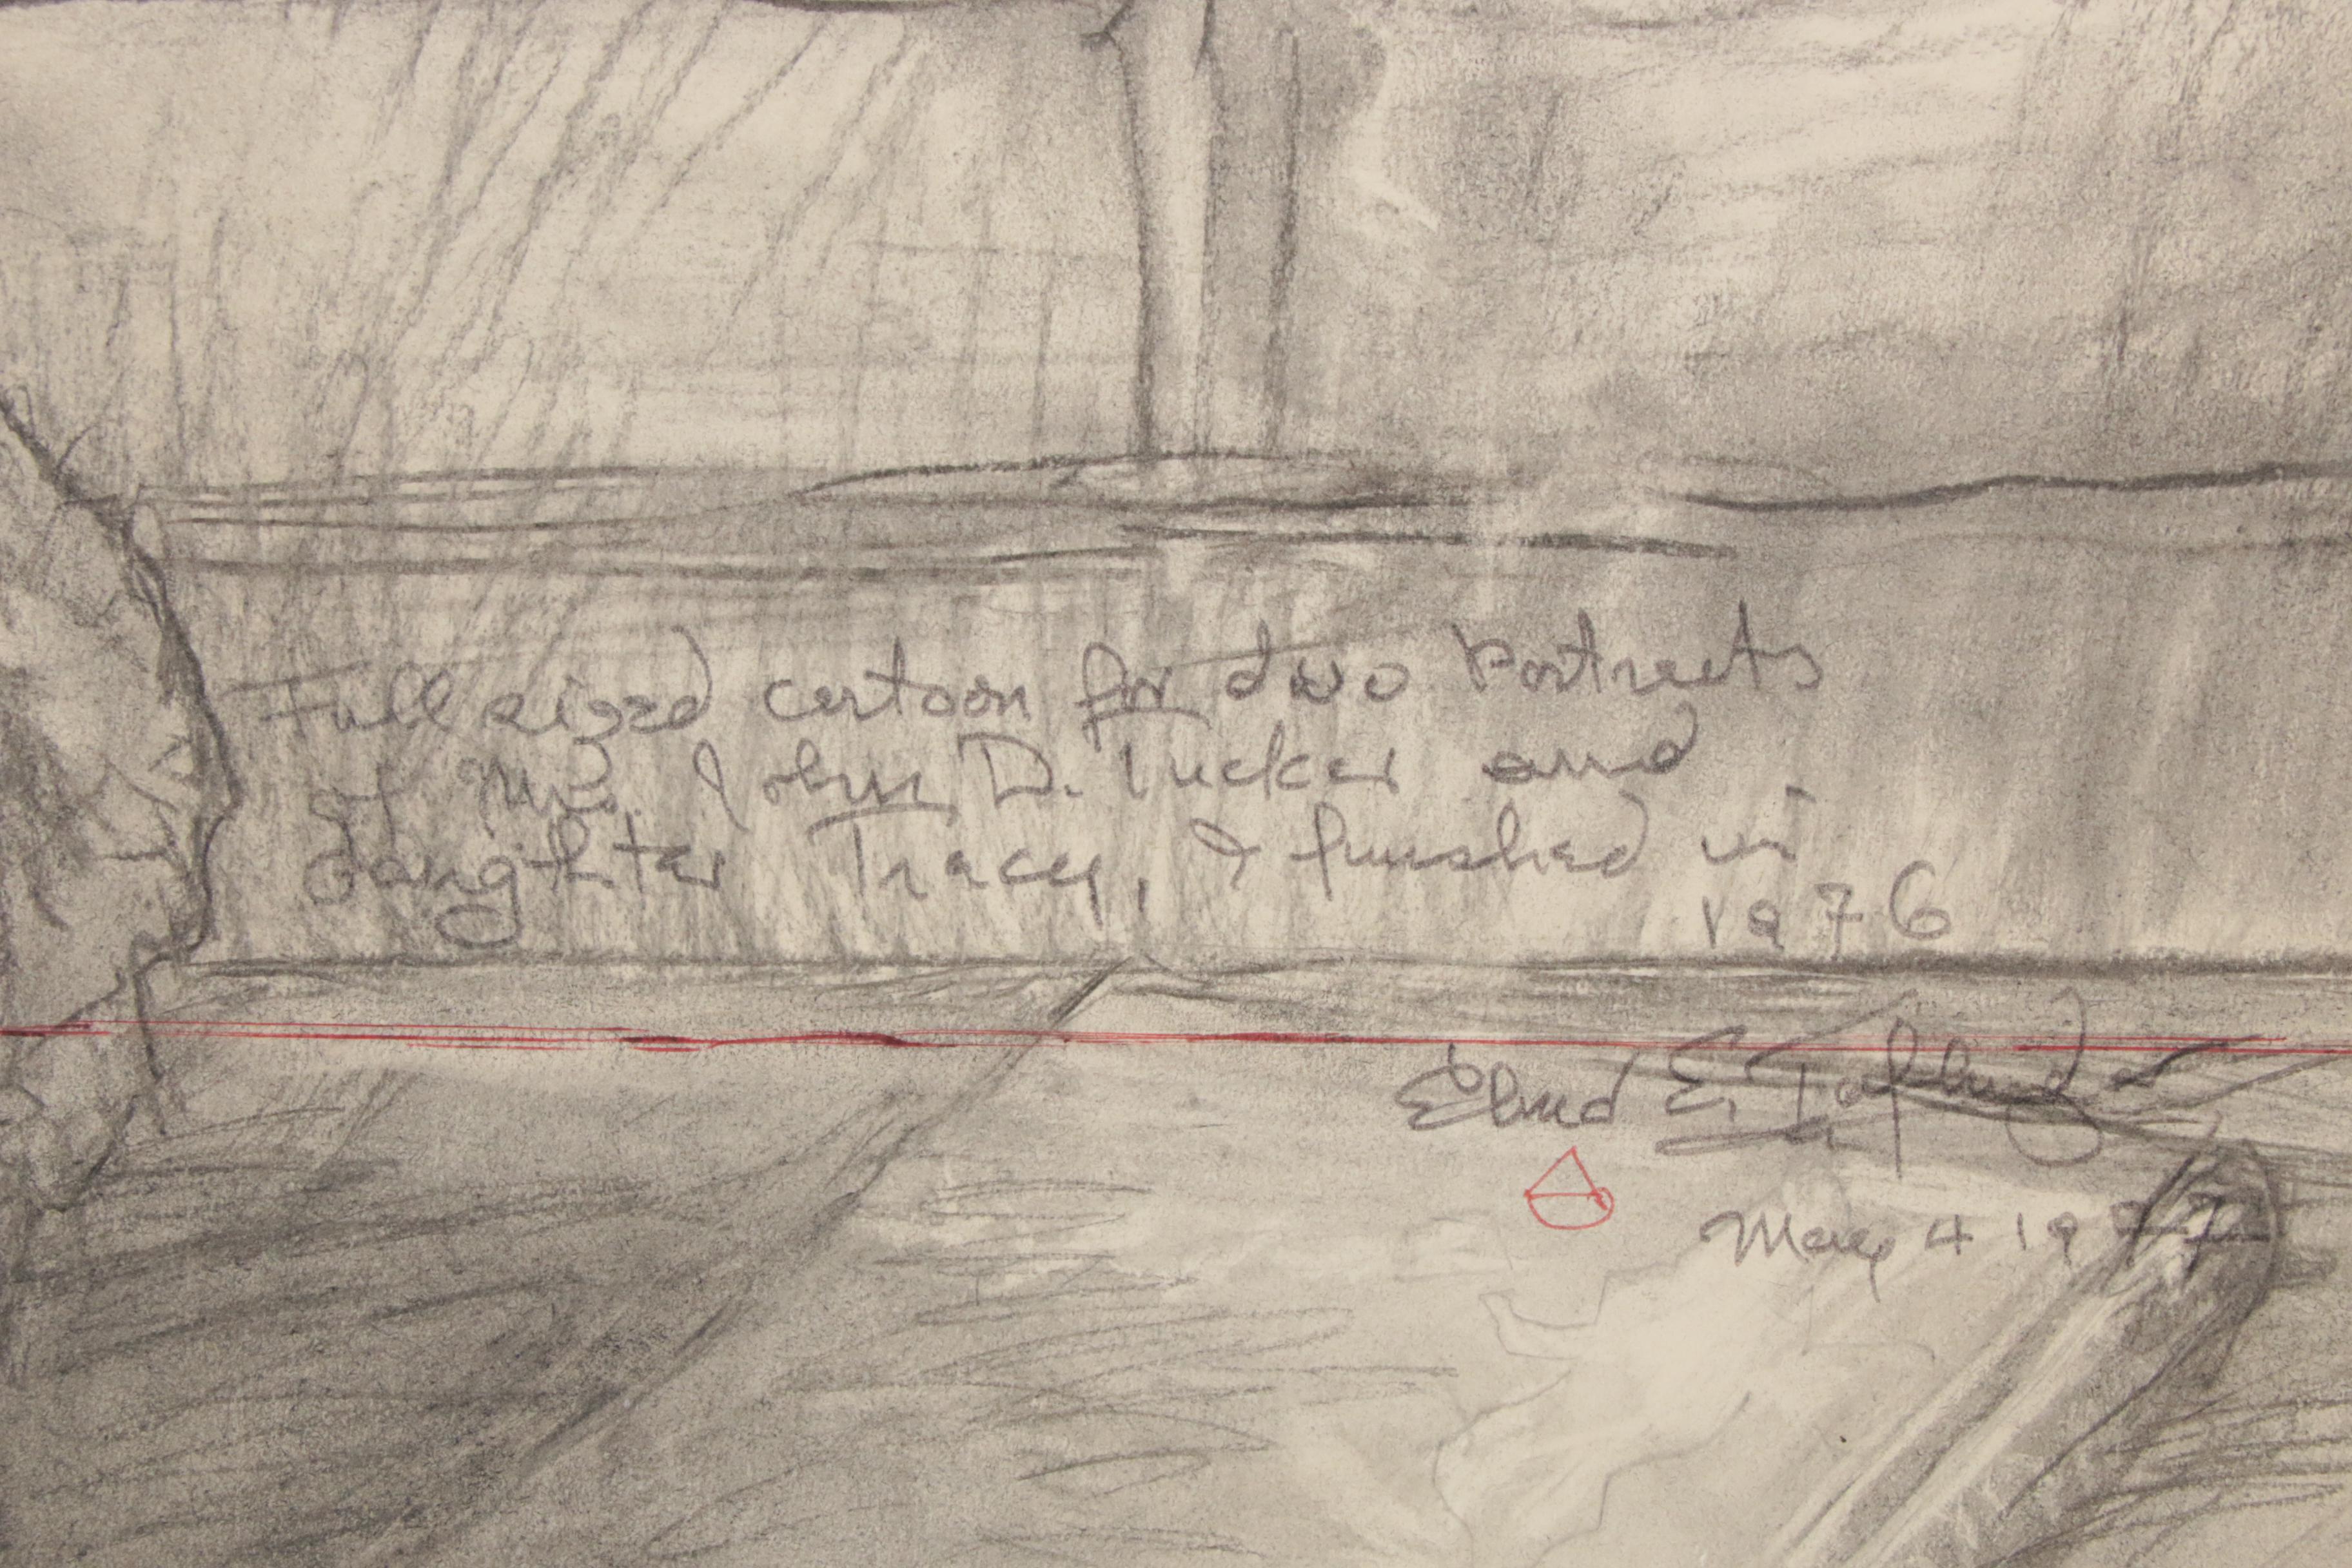 Full sized cartoon for two Portraits
of Mrs. John D. Tucker and
daughter Tracy, I finished in
1976
E.
May 4 1977